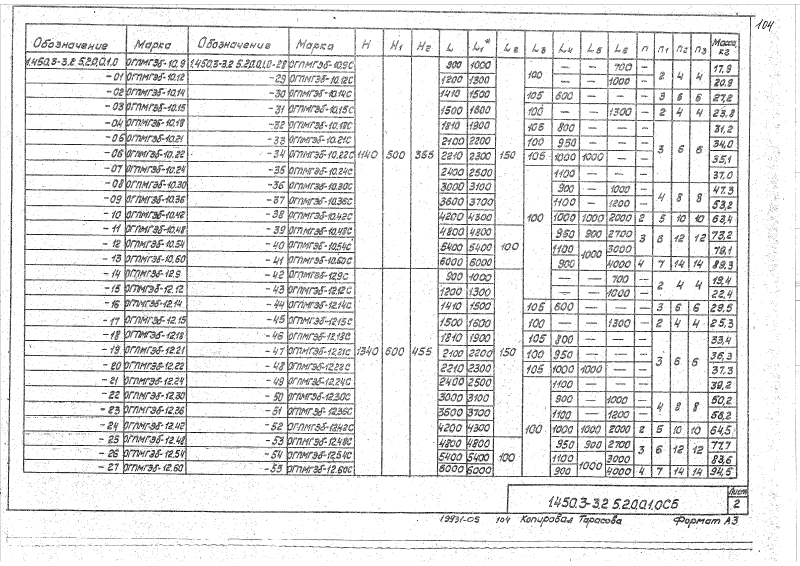 104
Обозначение Марка Обозначение Марка H H1 H2 L L1* L2 L3 L4 L5 L6 n n1 n2 n3 Масса, кг
1.450.3-3.2 5.2.0.0.1.0 ОГПМГЭб-10.9 1.450.3-3.2 5.2.0.0.1.0-28 ОГПМГЭб-10.9С 1140 500 355 900 1000 150 100 — — 700 — 2 4 4 17,9
-01 ОГПМГЭб-10.12 -29 ОГПМГЭб-10.12С 1200 1300 — — 1000 — 20,9
-02 ОГПМГЭб-10.14 -30 ОГПМГЭб-10.14С 1410 1500 105 600 — — — 3 6 6 27,2
-03 ОГПМГЭб-10.15 -31 ОГПМГЭб-10.15С 1500 1600 100 — — 1300 — 2 4 4 23,8
-04 ОГПМГЭб-10.18 -32 ОГПМГЭб-10.18С 1810 1900 105 800 — — — 3 6 6 31,2
-05 ОГПМГЭб-10.21 -33 ОГПМГЭб-10.21С 2100 2200 100 950 — — — 34,0
-06 ОГПМГЭб-10.22 -34 ОГПМГЭб-10.22С 2210 2300 105 1000 1000 — — 35,1
-07 ОГПМГЭб-10.24 -35 ОГПМГЭб-10.24С 2400 2500 100 1100 — — — 37,0
-08 ОГПМГЭб-10.30 -36 ОГПМГЭб-10.30С 3000 3100 900 — 1000 — 4 8 8 47,3
-09 ОГПМГЭб-10.36 -37 ОГПМГЭб-10.36С 3600 3700 1100 — 1200 — 53,2
-10 ОГПМГЭб-10.42 -38 ОГПМГЭб-10.42С 4200 4300 1000 1000 2000 2 5 10 10 63,4
-11 ОГПМГЭб-10.48 -39 ОГПМГЭб-10.48С 4800 4800 100 950 900 2700 3 6 12 12 73,2
-12 ОГПМГЭб-10.54 -40 ОГПМГЭб-10.54С 5400 5400 1100 1000 3000 79,1
-13 ОГПМГЭб-10.60 -41 ОГПМГЭб-10.60С 6000 6000 900 4000 4 7 14 14 89,3
-14 ОГПМГЭб-12.9 -42 ОГПМГЭб-12.9С 1340 600 455 900 1000 150 — — 700 — 2 4 4 19,4
-15 ОГПМГЭб-12.12 -43 ОГПМГЭб-12.12С 1200 1300 — — 1000 — 22,4
-16 ОГПМГЭб-12.14 -44 ОГПМГЭб-12.14С 1410 1500 105 600 — — — 3 6 6 29,5
-17 ОГПМГЭб-12.15 -45 ОГПМГЭб-12.15С 1500 1600 100 — — 1300 — 2 4 4 25,3
-18 ОГПМГЭб-12.18 -46 ОГПМГЭб-12.18С 1810 1900 105 800 — — — 3 6 6 33,4
-19 ОГПМГЭб-12.21 -47 ОГПМГЭб-12.21С 2100 2200 100 950 — — — 36,3
-20 ОГПМГЭб-12.22 -48 ОГПМГЭб-12.22С 2210 2300 105 1000 1000 — — 37,3
-21 ОГПМГЭб-12.24 -49 ОГПМГЭб-12.24С 2400 2500 100 1100 — — — 39,2
-22 ОГПМГЭб-12.30 -50 ОГПМГЭб-12.30С 3000 3100 900 — 1000 — 4 8 8 50,2
-23 ОГПМГЭб-12.36 -51 ОГПМГЭб-12.36С 3600 3700 1100 — 1200 — 56,2
-24 ОГПМГЭб-12.42 -52 ОГПМГЭб-12.42С 4200 4300 1000 1000 2000 2 5 10 10 64,5
-25 ОГПМГЭб-12.48 -53 ОГПМГЭб-12.48С 4800 4800 100 950 900 2700 3 6 12 12 77,7
-26 ОГПМГЭб-12.54 -54 ОГПМГЭб-12.54С 5400 5400 1100 1000 3000 83,6
-27 ОГПМГЭб-12.60 -55 ОГПМГЭб-12.60С 6000 6000 900 4000 4 7 14 14 94,5
1.450.3-3.2 5.2.0.0.1.0СБ
Лист
2
19931-05 104 Копировал Тарасова Формат А3